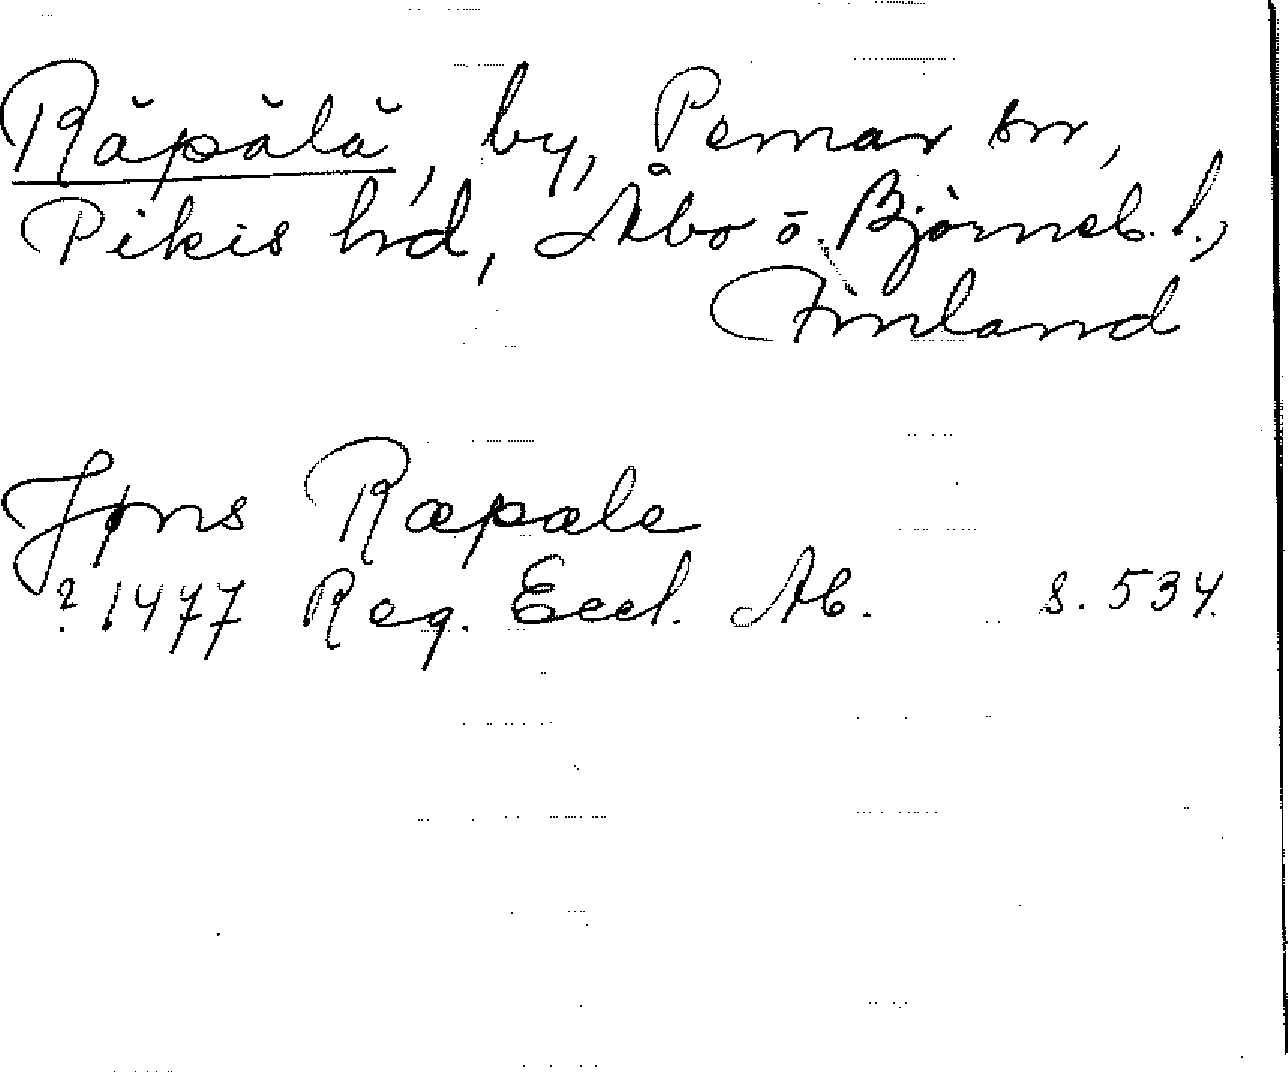 Räpälä, by, Pemar sn,
Pikis hd, Åbo o. Björneb. l.,
Finland
Jøns Ræpæle
? 1477 Reg. Eccl. Ab. s. 534.